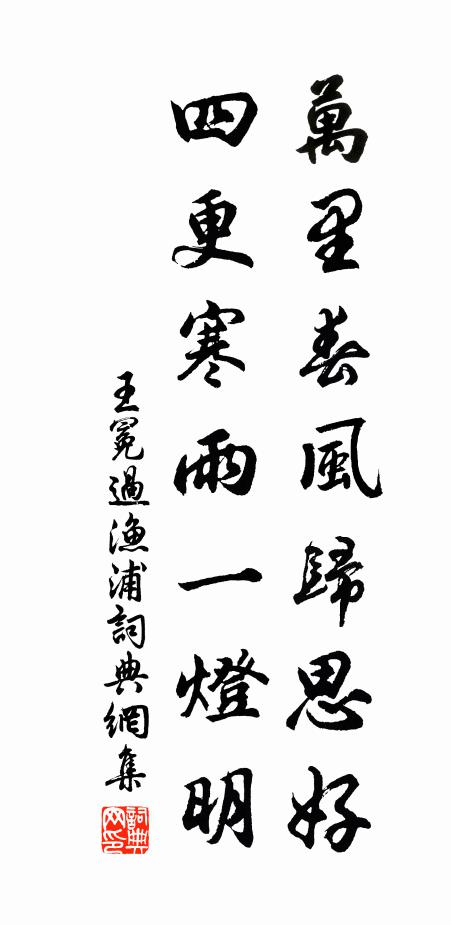 萬里春風歸思好
四更寒雨一燈明
王冕過漁浦詞典網集
詞典
网印